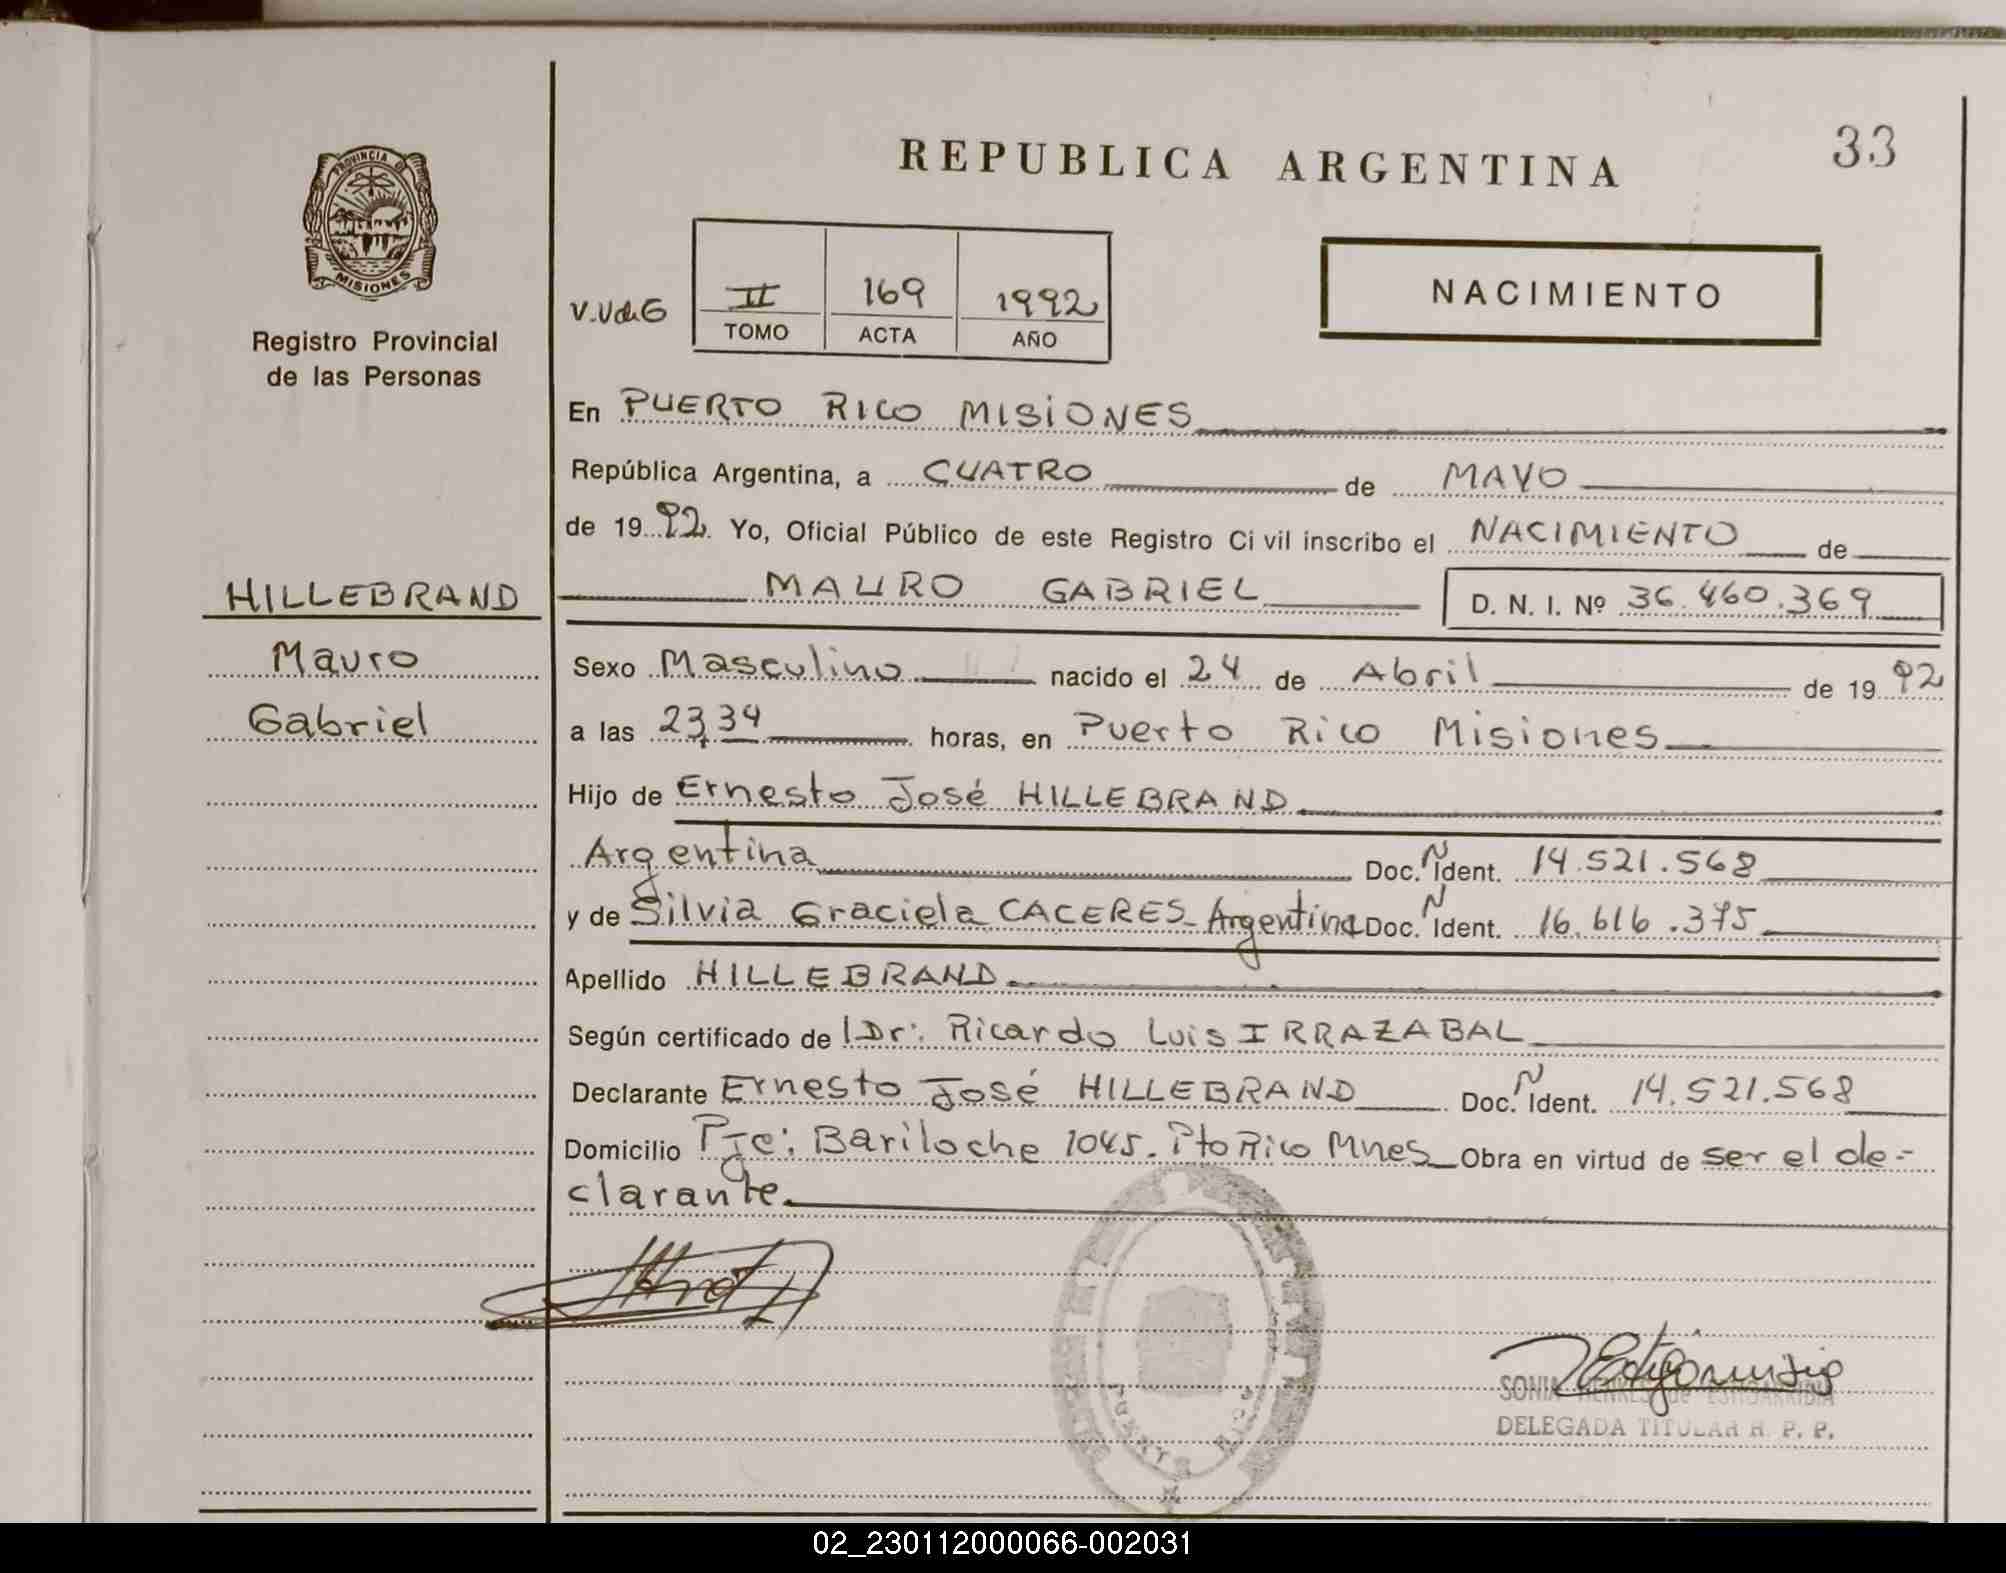 REPUBLICA ARGENTINA
33
PROVINCIA DE
MISIONES
Registro Provincial
de las Personas
V.VdeG
II
169
1992
TOMO
ACTA
AÑO
NACIMIENTO
En PUERTO RICO MISIONES
República Argentina, a CUATRO de MAYO
de 1992. Yo, Oficial Público de este Registro Civil inscribo el NACIMIENTO de
MAURO GABRIEL D. N. I. Nº 36.460.369
HILLEBRAND
Mauro
Gabriel
Sexo Masculino nacido el 24 de Abril de 1992
a las 23,34 horas, en Puerto Rico Misiones
Hijo de Ernesto José HILLEBRAND
Argentina Doc. N Ident. 14.521.568
y de Silvia Graciela CACERES- Argentina Doc. N Ident. 16.616.375
Apellido HILLEBRAND
Según certificado de Dr: Ricardo Luis IRRAZABAL
Declarante Ernesto José HILLEBRAND Doc. N Ident. 14.521.568
Domicilio Pje: Bariloche 1045. Pto Rico Mnes Obra en virtud de ser el de-
clarante.
PUERTO RICO
SONIA HENKES de
DELEGADA TITULAR R. P. P.
02_230112000066-002031